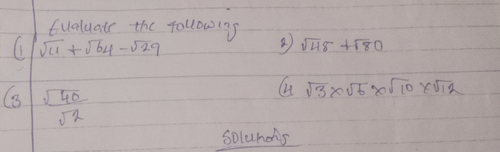 Evaluate the following
(1 √4 + √64 - √29 2) √45 + √80
(3 √40/√2 (4 √3 × √6 × √10 × √12
Solutions